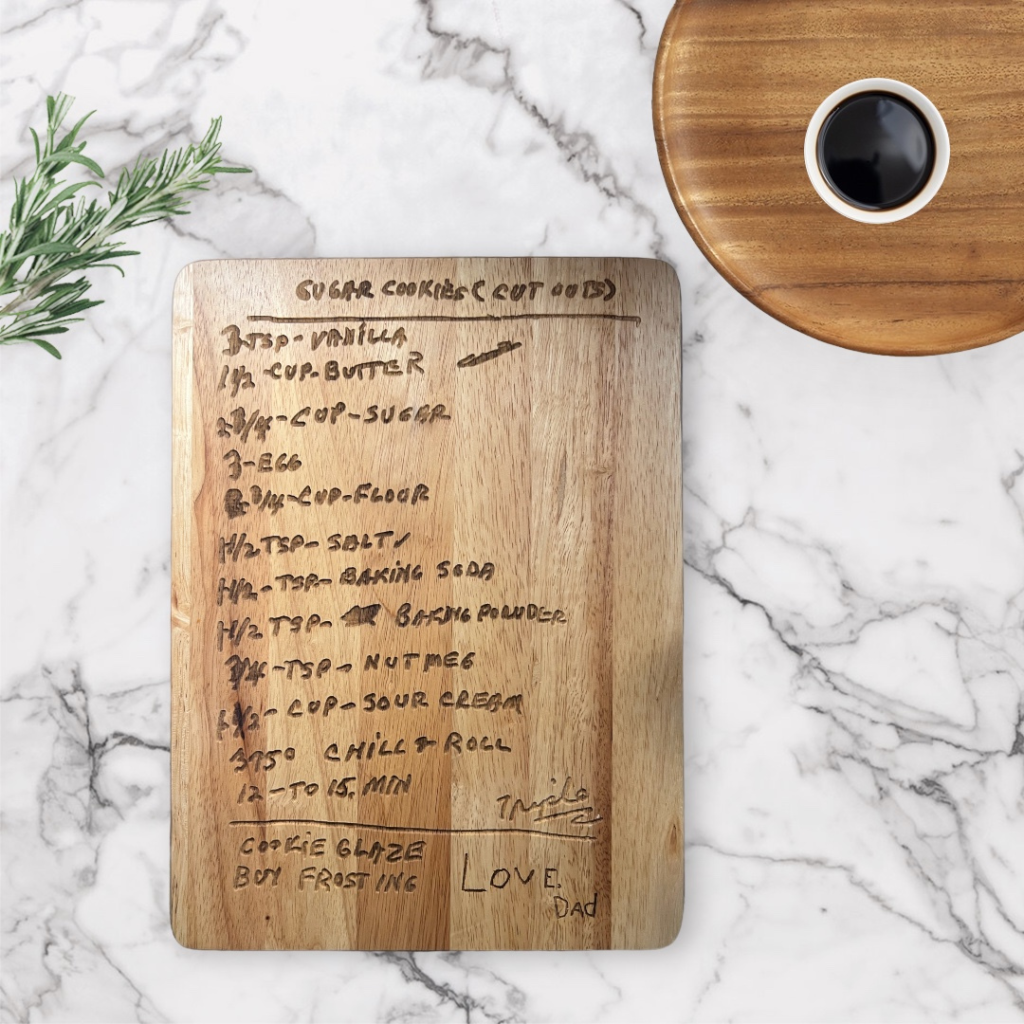 SUGAR COOKIES (CUT OUTS)
3-TSP-VANILLA
1 1/2 CUP-BUTTER
2 3/4-CUP-SUGAR
3-EGG
3/4-CUP-FLOUR
1 1/2 TSP-SALT
1 1/2-TSP-BAKING SODA
1 1/2 TSP- BAKING POWDER
3/4-TSP-NUTMEG
1/2-CUP-SOUR CREAM
375° CHILL & ROLL
12-TO 15. MIN
Triple
COOKIE GLAZE
BUY FROSTING
LOVE.
DAD